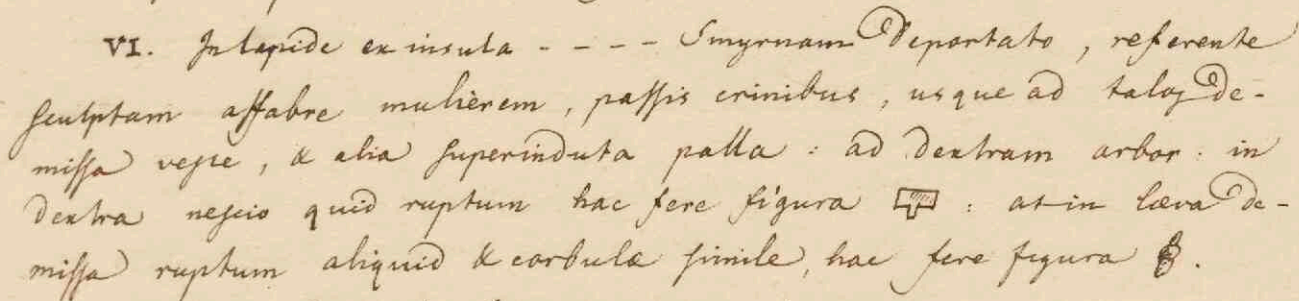 VI. In lapide ex insula - - - - Smyrnam deportato, referente
sculptam affabre mulièrem, passis crinibus, usque ad talos de-
missa veste, & alia superinduta palla: ad dextram arbor: in
dextra nescio quid ruptum hac fere figura : at in læva de-
missa ruptum aliquid & corbulæ simile, hac fere figura .